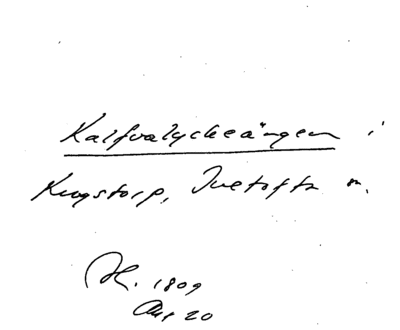 Kalfvalyckeängen i
Kungstorp, Tuetofta m.
H. 1809
Aug 20